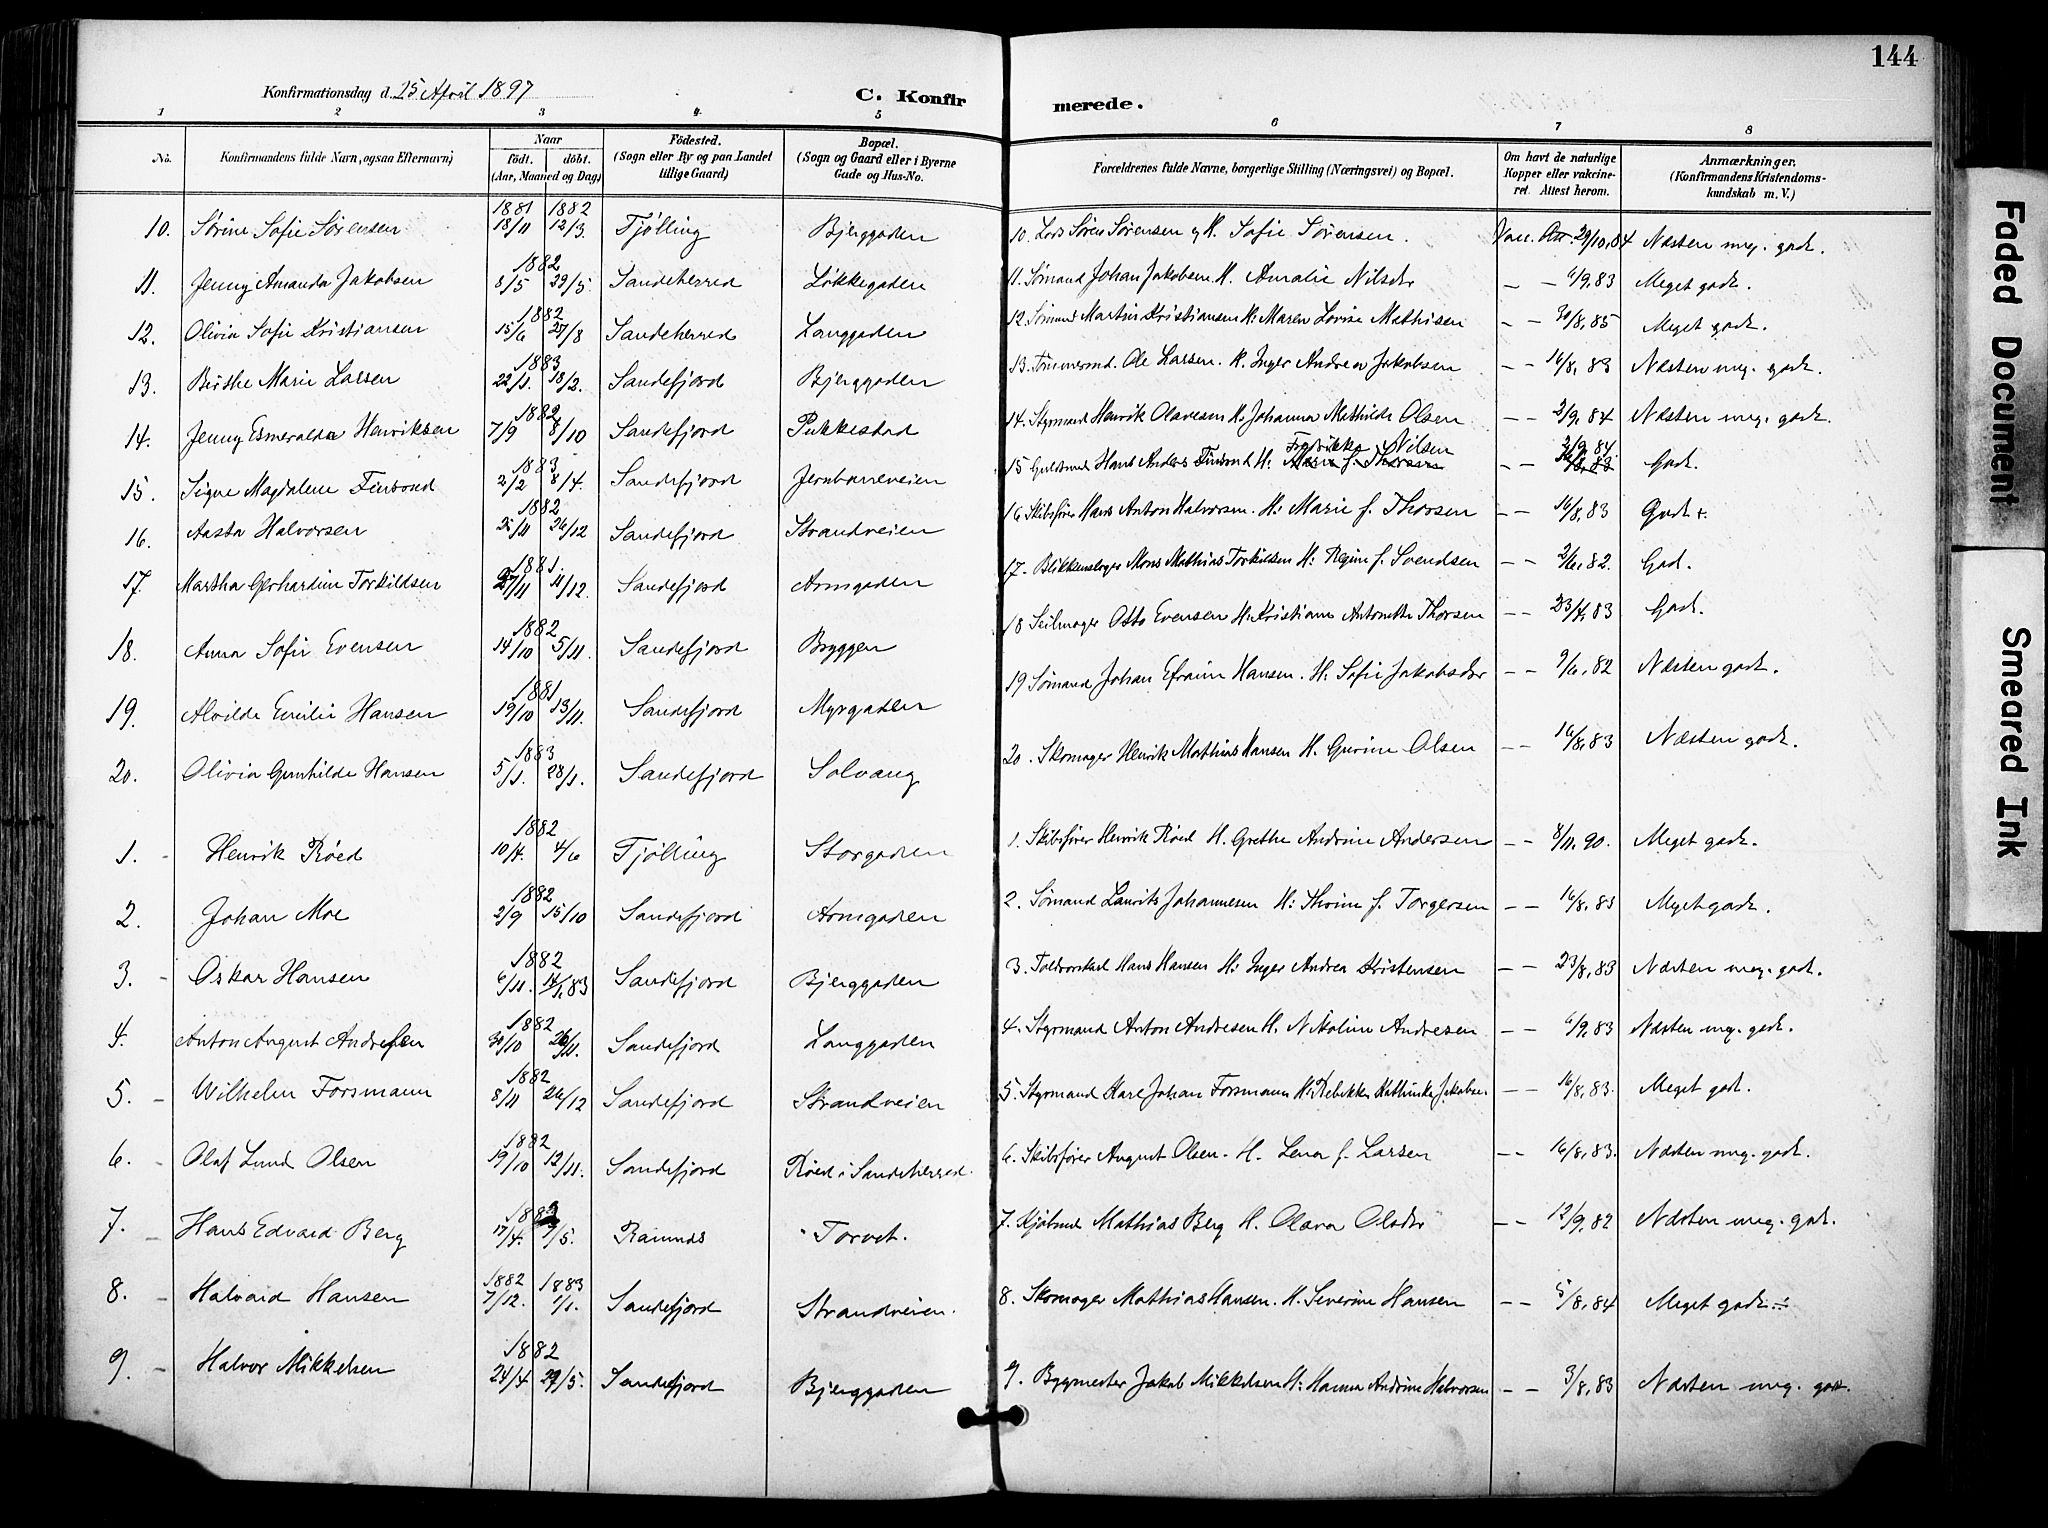 144
Konfirmationsdag d. 25 April 1897
C. Konfirmerede.
1 2 3 4 5 6 7 8
No. | Konfirmandens fulde Navn, ogsaa Efternavn) | Naar födt. döbt. (Aar, Maaned og Dag) | Födested. (Sogn eller By og paa Landet tillige Gaard) | Bopæl. (Sogn og Gaard eller i Byerne Gade og Hus-No. | Forældrenes fulde Navne, borgerlige Stilling (Næringsvei) og Bopæl. | Om havt de naturlige Kopper eller vakcineret. Attest herom. | Anmærkninger. (Konfirmandens Kristendomskundskab m. V.)
10. Sørine Sofie Sørensen 1881 18/11 1882 12/3 Tjølling Bjerggaden 10. Lods Søren Sørensen og H. Sofie Sørensen. Vacc. Att. 29/10,84 Næsten meg. godt.
11. Jenny Amanda Jakobsen 1882 8/5 29/5 Sandeherred Løkkegaden 11. Sømand Johan Jakobsen H. Amalie Nilsdr — — 6/9,83 Meget godt.
12. Olivia Sofie Kristiansen 1882 15/6 27/8 Sandeherred Langgaden 12. Sømand Martin Kristiansen H: Maren Lovise Mathisen — — 30/8,85 Meget godt.
13. Birthe Marie Larsen 1883 22/1. 18/2. Sandefjord Bjerggaden 13. Tømmermd. Ole Larsen. H. Inger Andrea Jakobsen — — 16/8, 83 Næsten meg. godt.
14. Jenny Esmeralda Henriksen 1882 7/9 8/10 Sandefjord Pukkestad 14. Styrmand Henrik Olavesen H: Johanna Mathilde Olsen — — 2/9, 84 Næsten meg. godt.
15. Signe Magdalene Finsrud 1883 2/2 8/4. Sandefjord Jernbaneveien 15 Guldsmed Hans Anders Finsrud H: Fredrikke Nilsen — — 2/9,84. Godt.
16. Aasta Halvorsen 1882 26/12 Sandefjord Strandveien 16 Skibsfører Hans Anton Halvorsen. H: Marie f. Thorsen — — 16/8,83 Godt.
17. Martha Gerhardine Torkildsen 1881. 27/11 11/12. Sandefjord Armgaden 17. Blikkenslager Mons Mathias Torkildsen H: Regine f. Svendsen — — 2/6, 82. God.
18. Anna Sofie Evensen 1882 14/10 5/11. Sandefjord Bryggen 18 Seilmager Otto Evensen H: Kristiane Antonette Thorsen — — 23/4,83 Godt.
19. Alvilde Emilie Hansen 1881 19/10 13/11. Sandefjord Myrgaden 19 Sømand Johan Efraim Hansen. H. Sofie Jakobsdr — — 9/6, 82 Næsten godt.
20. Olivia Gunhilde Hansen 1883 5/1. 28/1. Sandefjord Solvang 20. Skomager Henrik Mathias Hansen H. Gurine Olsen — — 16/8,83 Næsten godt.
1. Henrik Røed 1882 10/4. 4/6 Tjølling Storgaden 1. Skibsfører Henrik Røed H. Grethe Andrine Andersen — — 8/11, 90. Meget godt.
2. Johan Moe 1882 2/9 15/10 Sandefjord Armgaden 2. Sømand Laurits Johannesen H: Thrine f. Torgersen — — 16/8,83 Meget godt.
3. Oskar Hansen 1882 6/11. 14/1,83 Sandefjord Bjerggaden 3. Toldvorskad Hans Hansen H: Inger Andrea Kristensen — — 23/8,83 Næsten meg. godt.
4. Anton August Andresen 1882 30/10 26/11. Sandefjord Langgaden 4. Styrmand Anton Andresen H. Nikoline Andresen — — 6/9,83 Næsten meg. godt.
5. Wilhelm Forsmann 1882 8/11 26/12 Sandefjord Strandveien 5. Styrmand Karl Johan Forsmann H: Rebekka Kathinka Jakobsen — — 16/8,83. Meget godt.
6. Olaf Lund Olsen 1882 19/10 12/11. Sandefjord Røed i Sandeherred. 6. Skibsfører August Olsen. H. Lena f. Larsen — — 16/8,83. Næsten meg. godt.
7. Hans Edvard Berg 17/4. 7/5. Ramnes Torvet. 7. Kjøbmd Mathias Berg H. Olava Olsdr — — 12/9,82 Næsten meg. godt.
8. Halvard Hansen 1882 7/12. 1883 7/1. Sandefjord Strandveien. 8. Skomager Mathias Hansen. H. Severine Hansen — — 5/8,84 Meget godt
9. Halvor Mikkelsen 1882 24/4 29/5. Sandefjord Bjerggaden 9. Bygmester Jakob Mikkelsen H: Hanna Andrine Halvorsen — — 3/8,83 Næsten meg. godt.
Faded Document
Smeared Ink